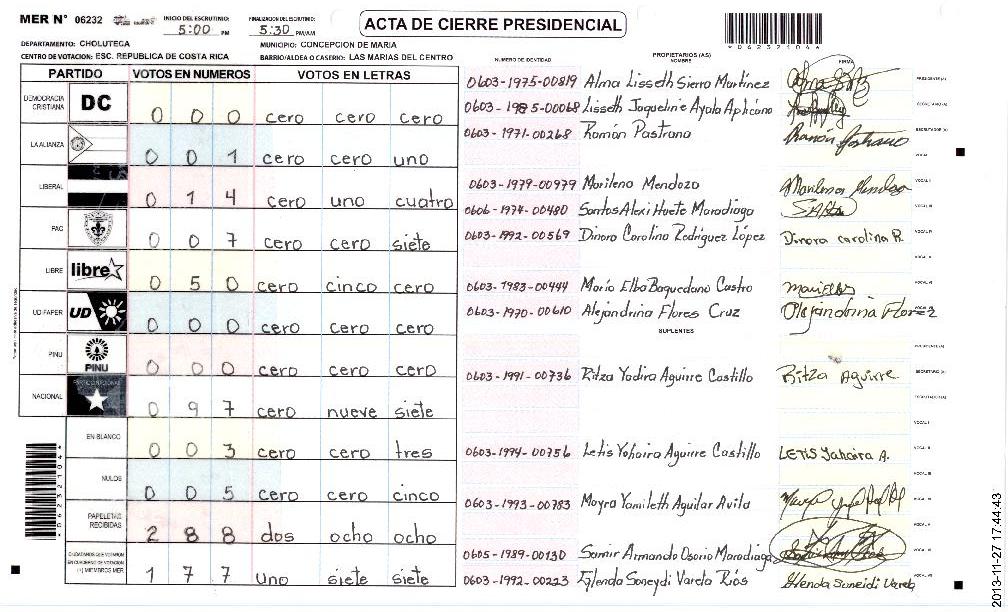 MER Nº 06232
INICIO DEL ESCRUTINIO: 5:00 PM
FINALIZACION DEL ESCRUTINIO: 5:30 PM/AM
ACTA DE CIERRE PRESIDENCIAL
* 0 6 2 3 2 1 0 4 *
DEPARTAMENTO: CHOLUTECA
MUNICIPIO: CONCEPCION DE MARIA
CENTRO DE VOTACION: ESC. REPUBLICA DE COSTA RICA
BARRIO/ALDEA O CASERIO: LAS MARIAS DEL CENTRO
PARTIDO VOTOS EN NUMEROS VOTOS EN LETRAS
DEMOCRACIA CRISTIANA DC 0 0 0 cero cero cero
LA ALIANZA 0 0 1 cero cero uno
LIBERAL 0 1 4 cero uno cuatro
PAC 0 0 7 cero cero siete
LIBRE libre 0 5 0 cero cinco cero
UD FAPER UD 0 0 0 cero cero cero
PINU PINU 0 0 0 cero cero cero
NACIONAL 0 9 7 cero nueve siete
EN BLANCO 0 0 3 cero cero tres
NULOS 0 0 5 cero cero cinco
PAPELETAS RECIBIDAS 2 8 8 dos ocho ocho
CIUDADANOS QUE VOTARON EN CUADERNO DE VOTACION (+) MIEMBROS MER 1 7 7 uno siete siete
NUMERO DE IDENTIDAD PROPIETARIOS (AS) NOMBRE FIRMA
0603-1975-00819 Alma Lisseth Sierra Martínez PRESIDENTE (A)
0603-1985-00068 Lisseth Jaqueline Ayala Aplicano SECRETARIO (A)
0603-1971-00268 Ramón Pastrana Ramón Pastrano ESCRUTADOR (A)
VOCAL I
0603-1979-00979 Marilena Mendoza Marilena Mendoza VOCAL II
0606-1974-00480 Santos Alexi Huete Maradiaga VOCAL III
0603-1992-00569 Dinora Carolina Rodríguez López Dinora carolina R. VOCAL IV
0603-1983-00444 María Elba Baquedano Castro VOCAL VI
0603-1970-00610 Alejandrina Flores Cruz Alejandrina Florez
SUPLENTES
0603-1991-00736 Ritza Yadira Aguirre Castillo Ritza Aguirre SECRETARIO (A)
ESCRUTADOR (A)
VOCAL I
0603-1994-00756 Letis Yahaira Aguirre Castillo LETIS Yahaira A. VOCAL II
VOCAL III
0603-1993-00783 Mayra Yamileth Aguilar Avila
0605-1989-00130 Samir Armando Osorio Maradiaga
0603-1992-00223 Glenda Soneydi Varela Ríos Glenda Suneidi Varela
2013-11-27 17:44:43